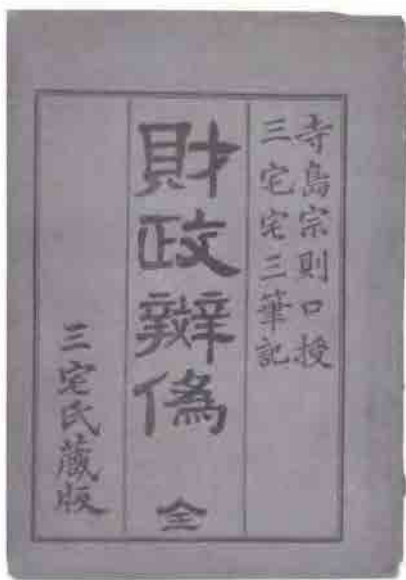 寺島宗則口授
三宅宅三筆記
財政辨偽 全
三宅氏蔵版